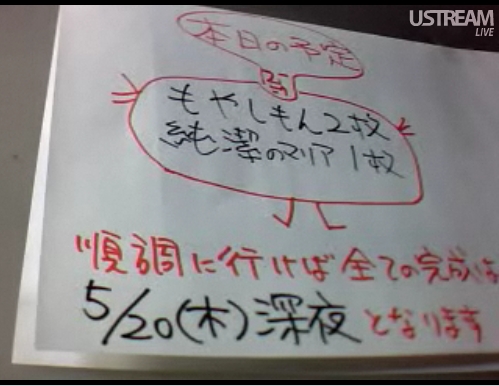 USTREAM
LIVE
本日の予定
もやしもん2枚
純潔のマリア1枚
順調に行けば全ての完成は
5/20(木)深夜となります